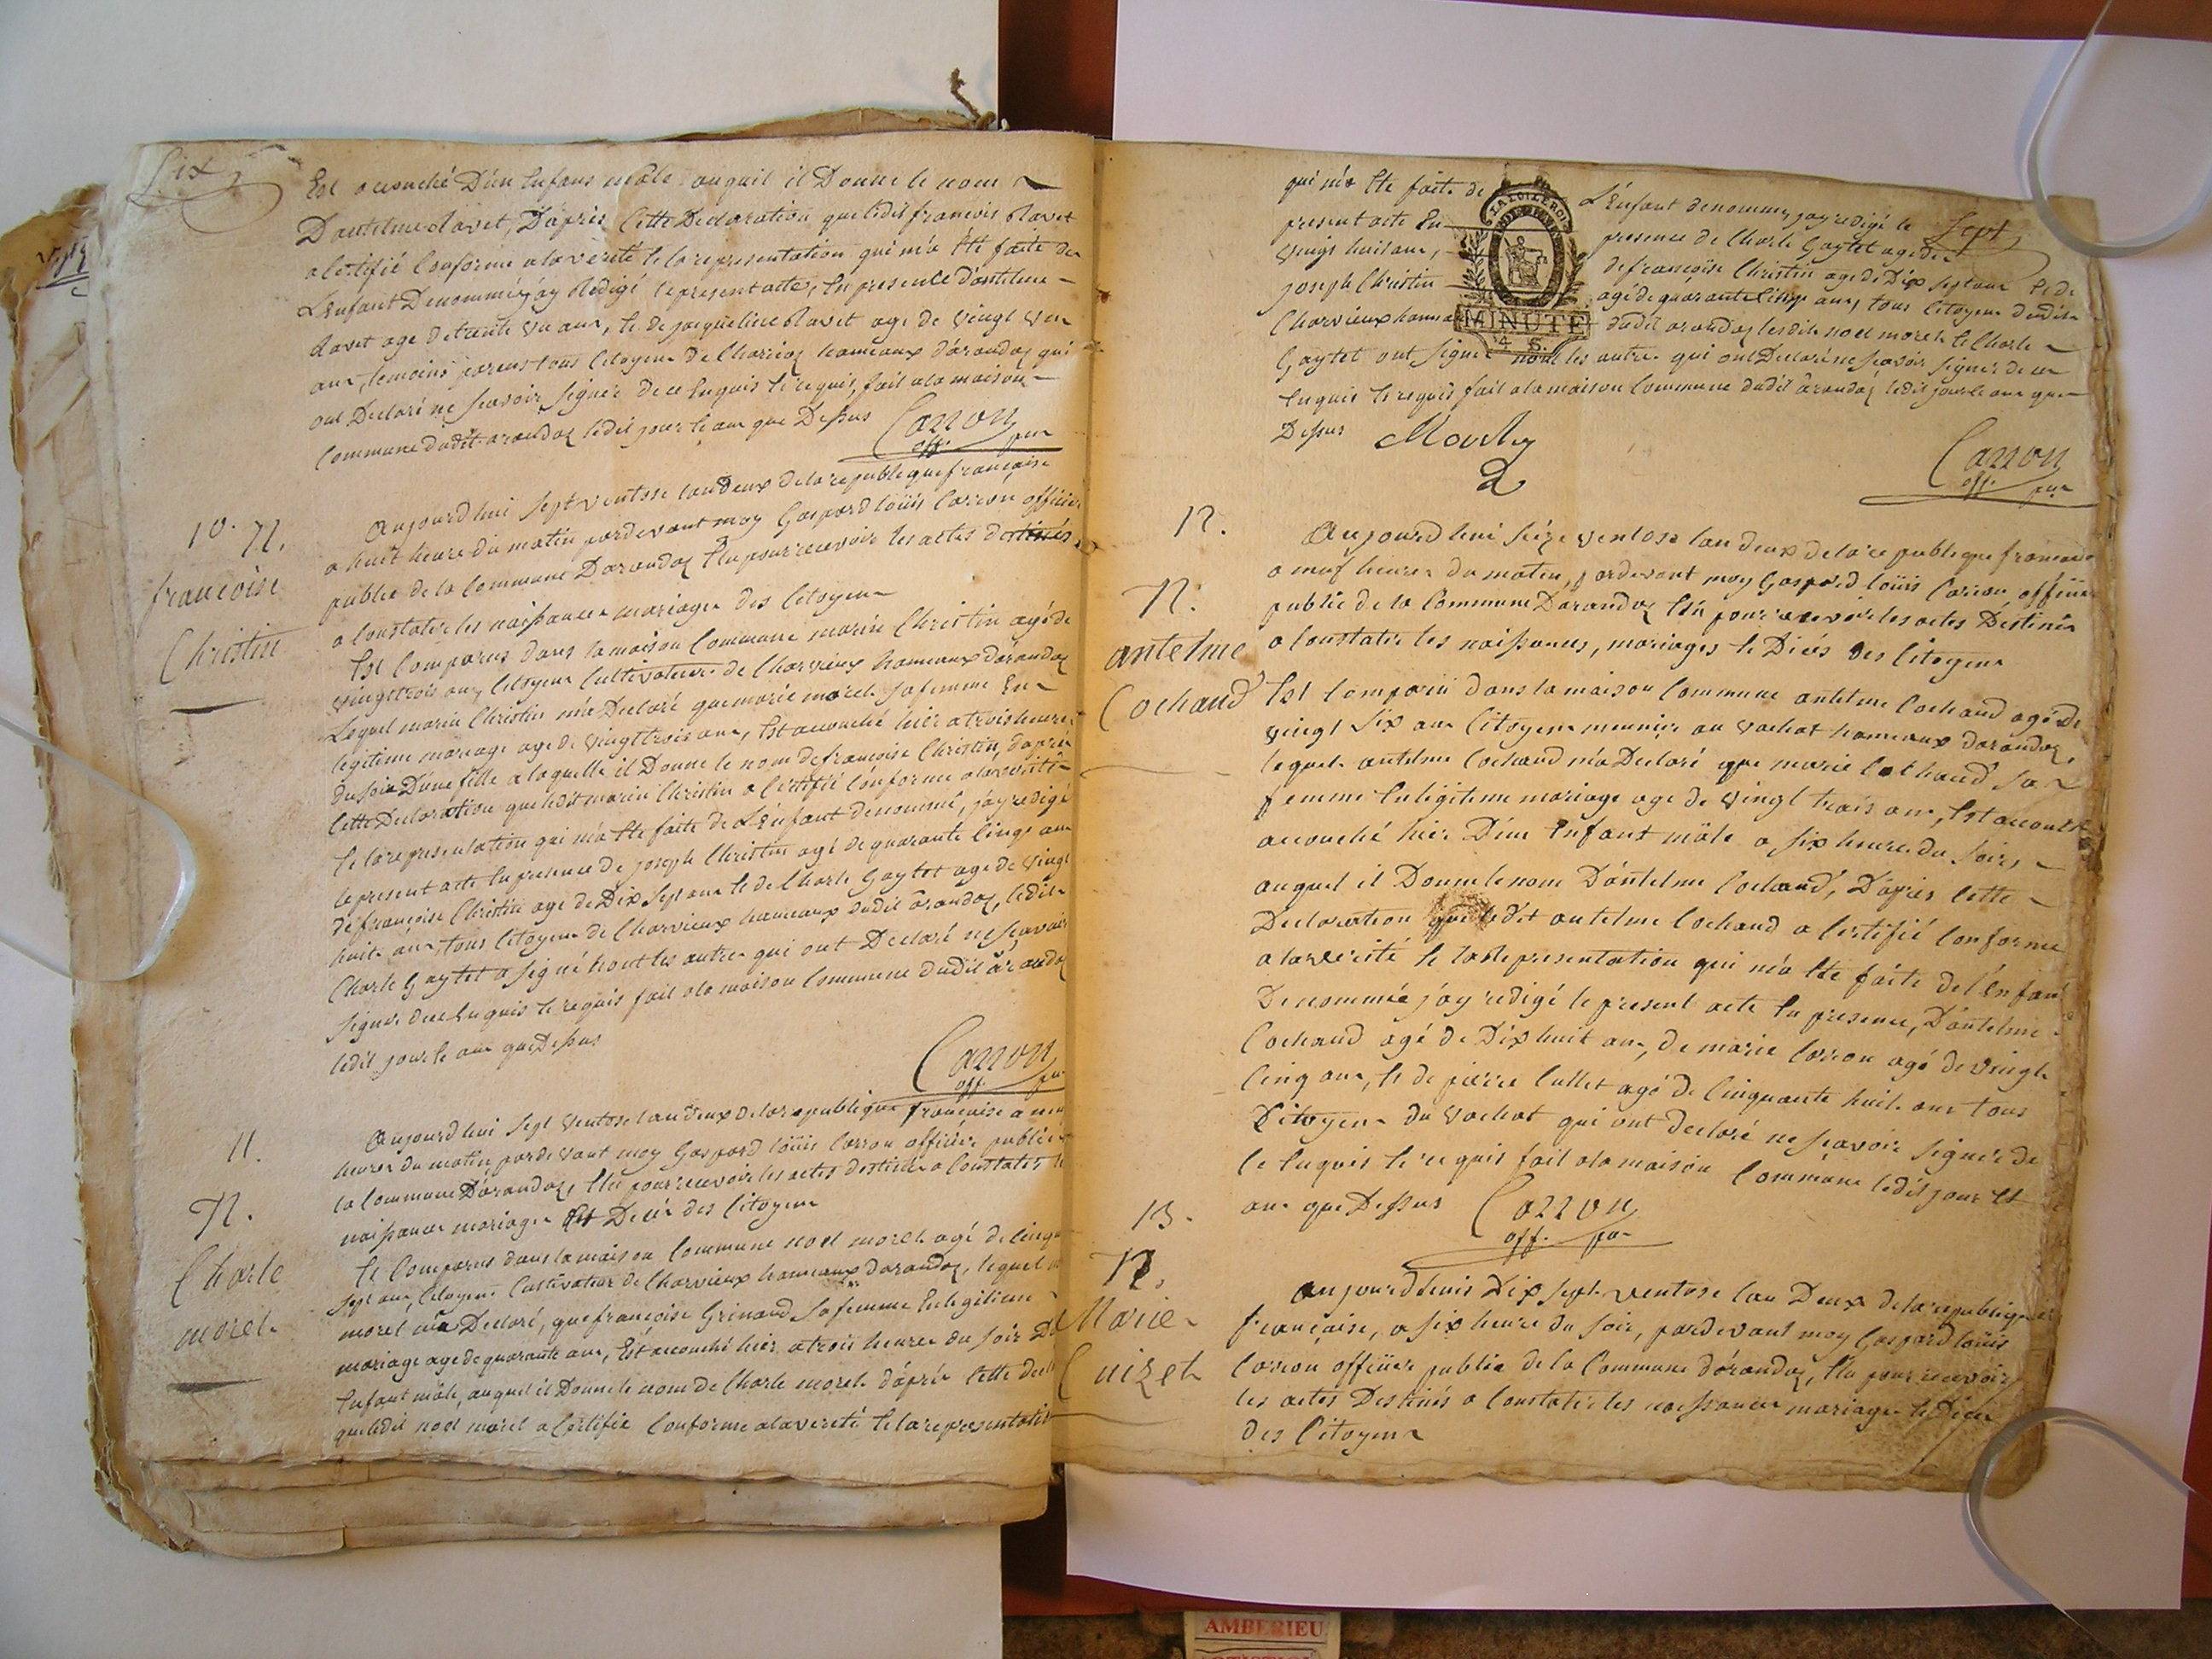 Six
Est accouché D'un Enfans mâle auquil il Donne le nom
D'antelme Ravet, D'apris Cette Declaration que ledit francois Ravet
a Certifié Conforme a la verité et la representation qui m'a Eté faite de
L'Enfant Denommé j'ay Redigé le present acte, En presence D'antelme
Ravet age de trente un ans, et de jacqueline Ravet age de vingt un
ans, temoins parens tous Citoyens de hameaux d'arandaz qui
ont Declaré ne scavoir signér de ce Enquis et requis, fait a la maison
Commune dudit arandaz ledit jour et an que Dessus Carron
off. pu.
10. N.
francoise
Christin
Aujourd'hui sept ventose l'an deux de la republique francaise
a huit heure du matin pardevant moy Gaspard Loüis Carron officier
public de la Commune D'arandaz Elu pour recevoir les actes destinés
a Constater les naissances mariages des Citoyens
Est Comparus dans la maison Commune marin Christin agé de
vingt trois ans, Citoyen Cultivateur de Charvieux hameaux d'arandaz
Lequel marin Christin m'a Declaré que marie morel sa femme En
legitime mariage age de vingt trois ans, Est accouché hier a trois heures
du soir D'une fille a laquelle il Donne le nom de francoise Christin, d'aprés
Cette Declaration que ledit marin Christin a Certifié Conforme a la verité
et la representation qui m'a Eté faite de L'Enfant denommé, j'ay redigé
le present acte En presence de joseph Christin agé de quarante Cinq ans
de francoise Christin age de Dix sept ans et de Charle Gaytet age de vingt
huit ans, tous Citoyens de Charvieux hameaux dudit arandaz, ledit
Charle Gaytet a signé non les autres qui ont Declaré ne scavoir
signer de ce Enquis et requis fait a la maison Commune dudit arandaz
ledit jour et an que Dessus
Carron
off. pu.
11.
N.
Charle
morel
Aujourd'hui sept ventose l'an deux de la republique francaise a neuf
heures du matin pardevant moy Gaspard Loüis Carron officier public de
la Commune D'arandaz, Elu pour recevoir les actes destinés a Constater les
naissances mariages Et Decés des Citoyens
Et Comparus dans la maison Commune noel morel agé de Cinqu
sept ans, Citoyen Cultivateur de Charvieux hameaux d'arandaz, lequel
morel m'a Declaré, que francoise Grinand sa femme En legitime
mariage age de quarante ans, Est accouché hier a trois heures du soir D
Enfant mâle, auquel il Donne le nom de Charle morel d'aprés Cette decl
que ledit noel morel a Certifié Conforme a la vereté et la representation
Sept
LA LOI LE ROI
MINUTE
4 S.
qui m'a Eté faite de L'Enfant denommé j'ay redigé le
present acte En presence de Charle Gaytet age de
vingt huit ans, de francoise Christin age de Dix sept ans et de
joseph Christin agé de quarante Cinq ans, tous Citoyens dudit
Charvieux hameau dudit arandaz lesdits noel morel et Charle
Gaytet ont signé non les autres qui ont Declaré ne scavoir signér de ce
Enquis et requis fait a la maison Commune dudit arandaz ledit jour et an que
Dessus
Carron
off. pu.
12.
N.
antelme
Cochand
Aujourd'hui seize ventose l'an deux de la republique francaise
a neuf heures du matin, pardevant moy Gaspard Loüis Carron officier
public de la Commune D'arandaz Elu pour recevoir les actes Destinés
a Constater les naissances, mariages et Décés des Citoyens
Est Comparü dans la maison Commune antelme Cochand agé de
vingt six ans Citoyen meunier au vachat hameaux d'arandaz,
lequel antelme Cochand m'a Declaré que marie Cochand sa
femme En legiteme mariage age de vingt trois ans, Est
accouché hier D'un Enfant mâle a six heures du soir,
auquel il Donne le nom D'antelme Cochand, D'apres Cette
Declaration que ledit antelme Cochand a Certifié Conforme
a la verité et la Representation qui m'a Eté faite de l'Enfant
Denommé j'ay redigé le present acte En presence, D'antelme
Cochand agé de Dix huit ans, de marie Carron agé de vingt
Cinq ans, et de pierre Cullet agé de Cinquante huit ans tous
Citoyens du vachat qui ont declaré ne scavoir signér de
Ce Enquis et requis fait a la maison Commune ledit jour et
an que Dessus Carron
off. pu.
13.
N.
Marie
Cuizel
Aujourd'huis Dix sept ventose l'an Deux de la republique
francaise, a six heure du soir, pardevant moy Gaspard Loüis
Carron officier public de la Commune d'arandaz, Elu pour recevoir
les actes Destinés a Constater les naissances mariages et Décés
des Citoyens
AMBERIEU